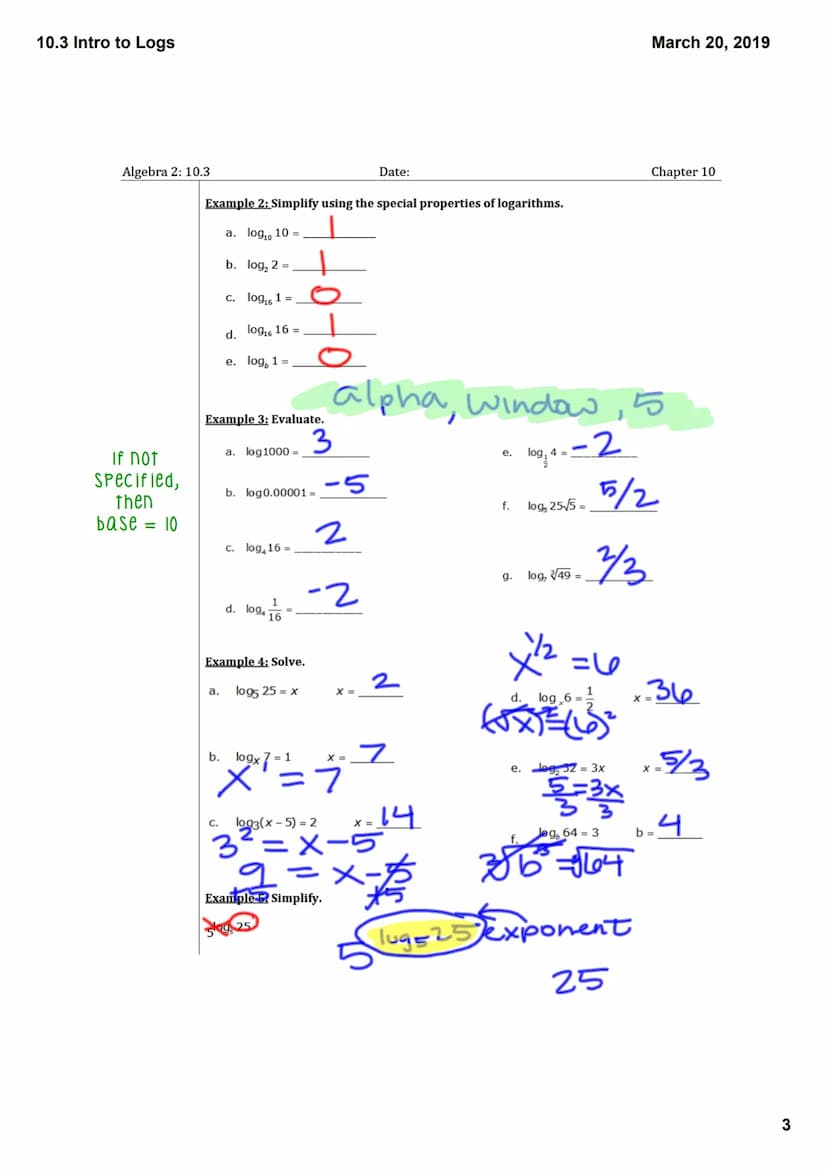 10.3 Intro to Logs March 20, 2019
Algebra 2: 10.3 Date: Chapter 10
Example 2: Simplify using the special properties of logarithms.
a. log₁₀ 10 = 1
b. log₂ 2 = 1
c. log₁₆ 1 = 0
d. log₁₆ 16 = 1
e. log_b 1 = 0
alpha, window, 5
Example 3: Evaluate.
If not
specified,
then
base = 10
a. log1000 = 3
b. log0.00001 = -5
c. log₄16 = 2
d. log₄ 1/16 = -2
e. log_1/2 4 = -2
f. log₅ 25√5 = 5/2
g. log₇ ∛49 = 2/3
Example 4: Solve.
a. log₅ 25 = x x = 2
b. logₓ 7 = 1 x = 7
x¹ = 7
c. log₃(x – 5) = 2 x = 14
3² = x-5
9 = x-5
+5 +5
x^1/2 = 6
d. logₓ 6 = 1/2 x = 36
(√x)² = (6)²
e. log₂ 32 = 3x x = 5/3
5 = 3x
3 3
f. log_b 64 = 3 b = 4
∛b³ = ∛64
Example 5: Simplify.
5^log₅ 25
5^log₅25 exponent
25
3